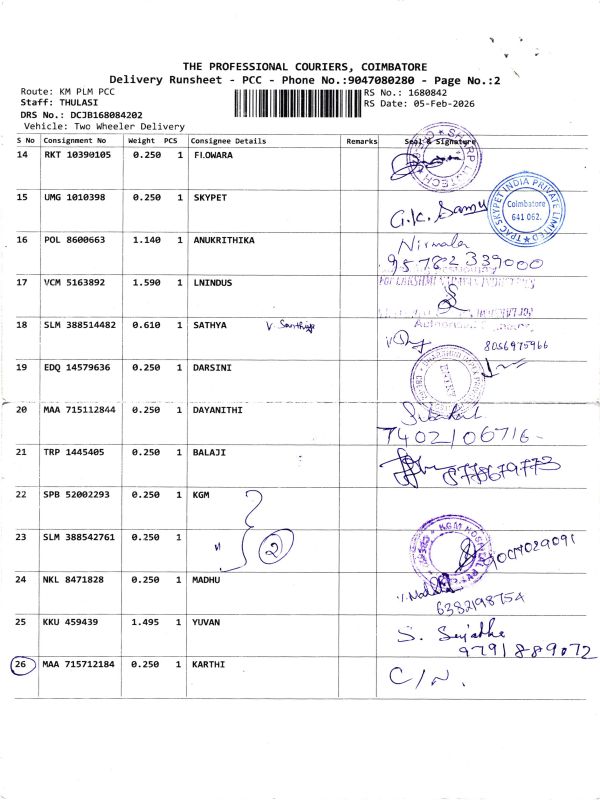 THE PROFESSIONAL COURIERS, COIMBATORE
Delivery Runsheet - PCC - Phone No.:9047080280 - Page No.:2
Route: KM PLM PCC
RS No.: 1680842
Staff: THULASI
RS Date: 05-Feb-2026
DRS No.: DCJB168084202
Vehicle: Two Wheeler Delivery
S No Consignment No Weight PCS Consignee Details Remarks Seal & Signature
14 RKT 10390105 0.250 1 FI.OWARA
15 UMG 1010398 0.250 1 SKYPET G.K. Samy
TPACSKYPET INDIA PRIVATE LIMITED
Coimbatore
641 062.
16 POL 8600663 1.140 1 ANUKRITHIKA Nirmala
95782339000
17 VCM 5163892 1.590 1 LNINDUS
18 SLM 388514482 0.610 1 SATHYA
8056975966
19 EDQ 14579636 0.250 1 DARSINI
20 MAA 715112844 0.250 1 DAYANITHI
7402106716
21 TRP 1445405 0.250 1 BALAJI
8778679773
22 SPB 52002293 0.250 1 KGM
23 SLM 388542761 0.250 1 " 2
KGM HOSPITAL
24 NKL 8471828 0.250 1 MADHU
6382198754
25 KKU 459439 1.495 1 YUVAN S.
9791889072
26 MAA 715712184 0.250 1 KARTHI C/N.